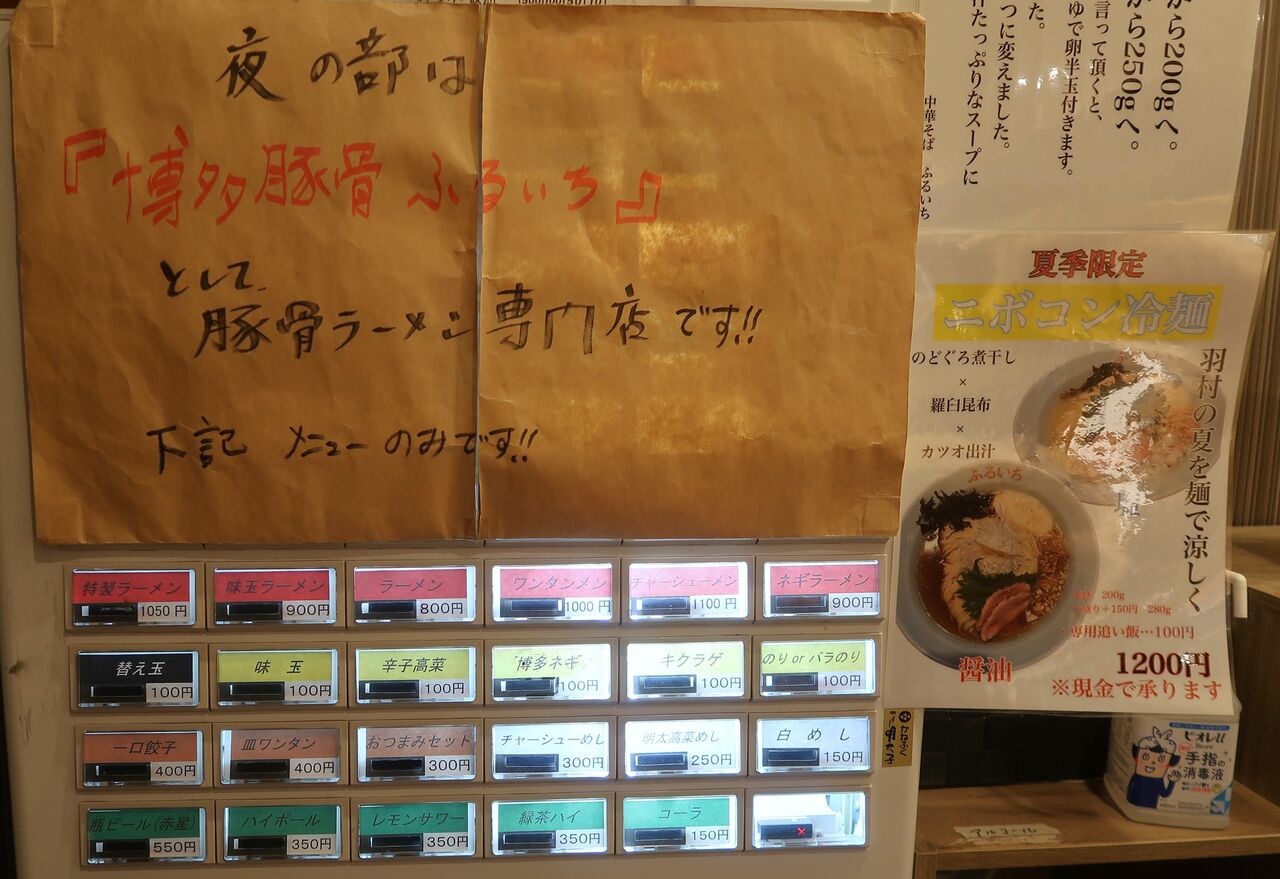 夜の部は
『博多豚骨ふるいち』
として、
豚骨ラーメン専門店です!!
下記 メニューのみです!!
特製ラーメン 1050円
味玉ラーメン 900円
ラーメン 800円
ワンタンメン 1000円
チャーシューメン 1100円
ネギラーメン 900円
替え玉 100円
味玉 100円
辛子高菜 100円
博多ネギ 100円
キクラゲ 100円
のり or バラのり 100円
一口餃子 400円
皿ワンタン 400円
おつまみセット 300円
チャーシューめし 300円
明太高菜めし 250円
白めし 150円
瓶ビール(赤星) 550円
ハイボール 350円
レモンサワー 350円
緑茶ハイ 350円
コーラ 150円
から200gへ。
から250gへ。
言って頂くと、
ゆで卵半玉付きます。
た。
つに変えました。
たっぷりなスープに
中華そば ふるいち
夏季限定
ニボコン冷麺
のどぐろ煮干し
×
羅臼昆布
×
カツオ出汁
羽村の夏を麺で涼しく
ふるいち
塩
200g
+150円 280g
専用追い飯…100円
醤油
1200円
※現金で承ります
かねふく
明太子
ビオレu
Biore
手指の
消毒液
アルコール